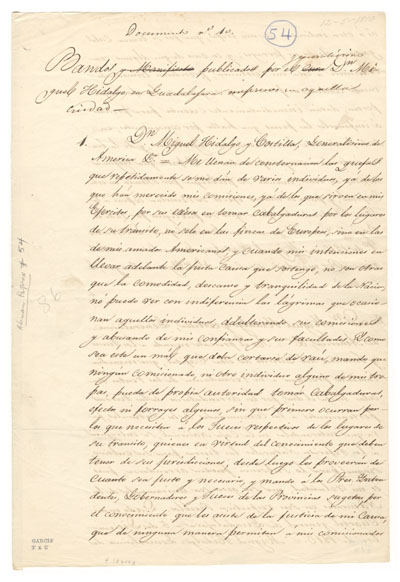 Documento nº 10.
54
Bandos y Manifiesto publicados por el Cura Dn Mi-
guel Hidalgo en Guadalajara impresos en aquella
ciudad—
1. Dn Miguel Hidalgo y Costilla, Generalísimo de
America &a = Me llenan de consternacion las quejas
que repetidamente se me dán de varios individuos, yá de los
que han merecido mis comisiones, yá de los que sirven en mis
Exercitos, por su exeso en tomar cabalgaduras por los lugares
de su tránsito, no solo en las fincas de Europeos, sino en las
de mis amados Americanos, y cuando mis intenciones en
llevar adelante la justa causa que sostengo, no son otras
que la comodidad, descanso y tranquilidad de la Nacion,
no puedo ver con indiferencia las lágrimas que ocasio-
nan aquellos individuos, adulterando sus comisiones
y abusando de mis confianzas y sus facultades. Y como
sea este un mál que debe cortarse de raiz, mando que
ningun comisionado ni otro individuo alguno de mis tro-
pas, pueda de propia autoridad tomár cabalgaduras,
efectos ni forrages algunos, sin que primero ocurran por
los que necesiten á los Jueces respectivos de los lugares de
su tránsito, quienes en virtud del conocimiento que deben
tener de sus jurisdiciones, desde luego los proveerán de
cuanto sea justo y necesario, y mando á los Sres. Inten-
dentes, Gobernadores y Jueces de las Provincias sugetas, por
el convencimiento que les asiste de la justicia de mi causa,
que de ninguna manera permitan a mis comisionados
86
GARCIA